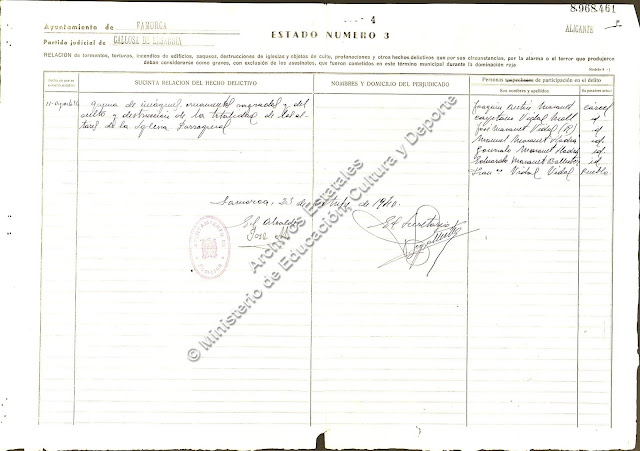 8.968.461
4
Ayuntamiento de FAMORCA
ESTADO NUMERO 3
ALICANTE
Partido judicial de CALLOSA DE ENSARRIA
RELACION de tormentos, torturas, incendios de edificios, saqueos, destrucciones de iglesias y objetos de culto, profanaciones y otros hechos delictivos que por sus circunstancias, por la alarma o el terror que produjeron
deban considerarse como graves, con exclusión de los asesinatos, que fueron cometidos en este término municipal durante la dominación roja
SUCINTA RELACION DEL HECHO DELICTIVO
NOMBRES Y DOMICILIO DEL PERJUDICADO
Personas sospechosas de participación en el delito
Son nombres y apellidos
quema de imágenes, ornamentos sagrados y del
culto y destrucción de la totalidad de los al-
tares de la Iglesia Parroquial
Joaquin Mauset carcel
Cayetano Vidal Moll id.
José Mauset Vidal id.
Manuel Mauset id.
Gonzalo Mauset id.
Eduardo Mauset Ballester id.
Vidal Vidal Pueblo
Famorca, 23 de de 1940.
El Alcalde
El Secretario
José
© Ministerio de Educación, Cultura y Deporte
Archivos Estatales